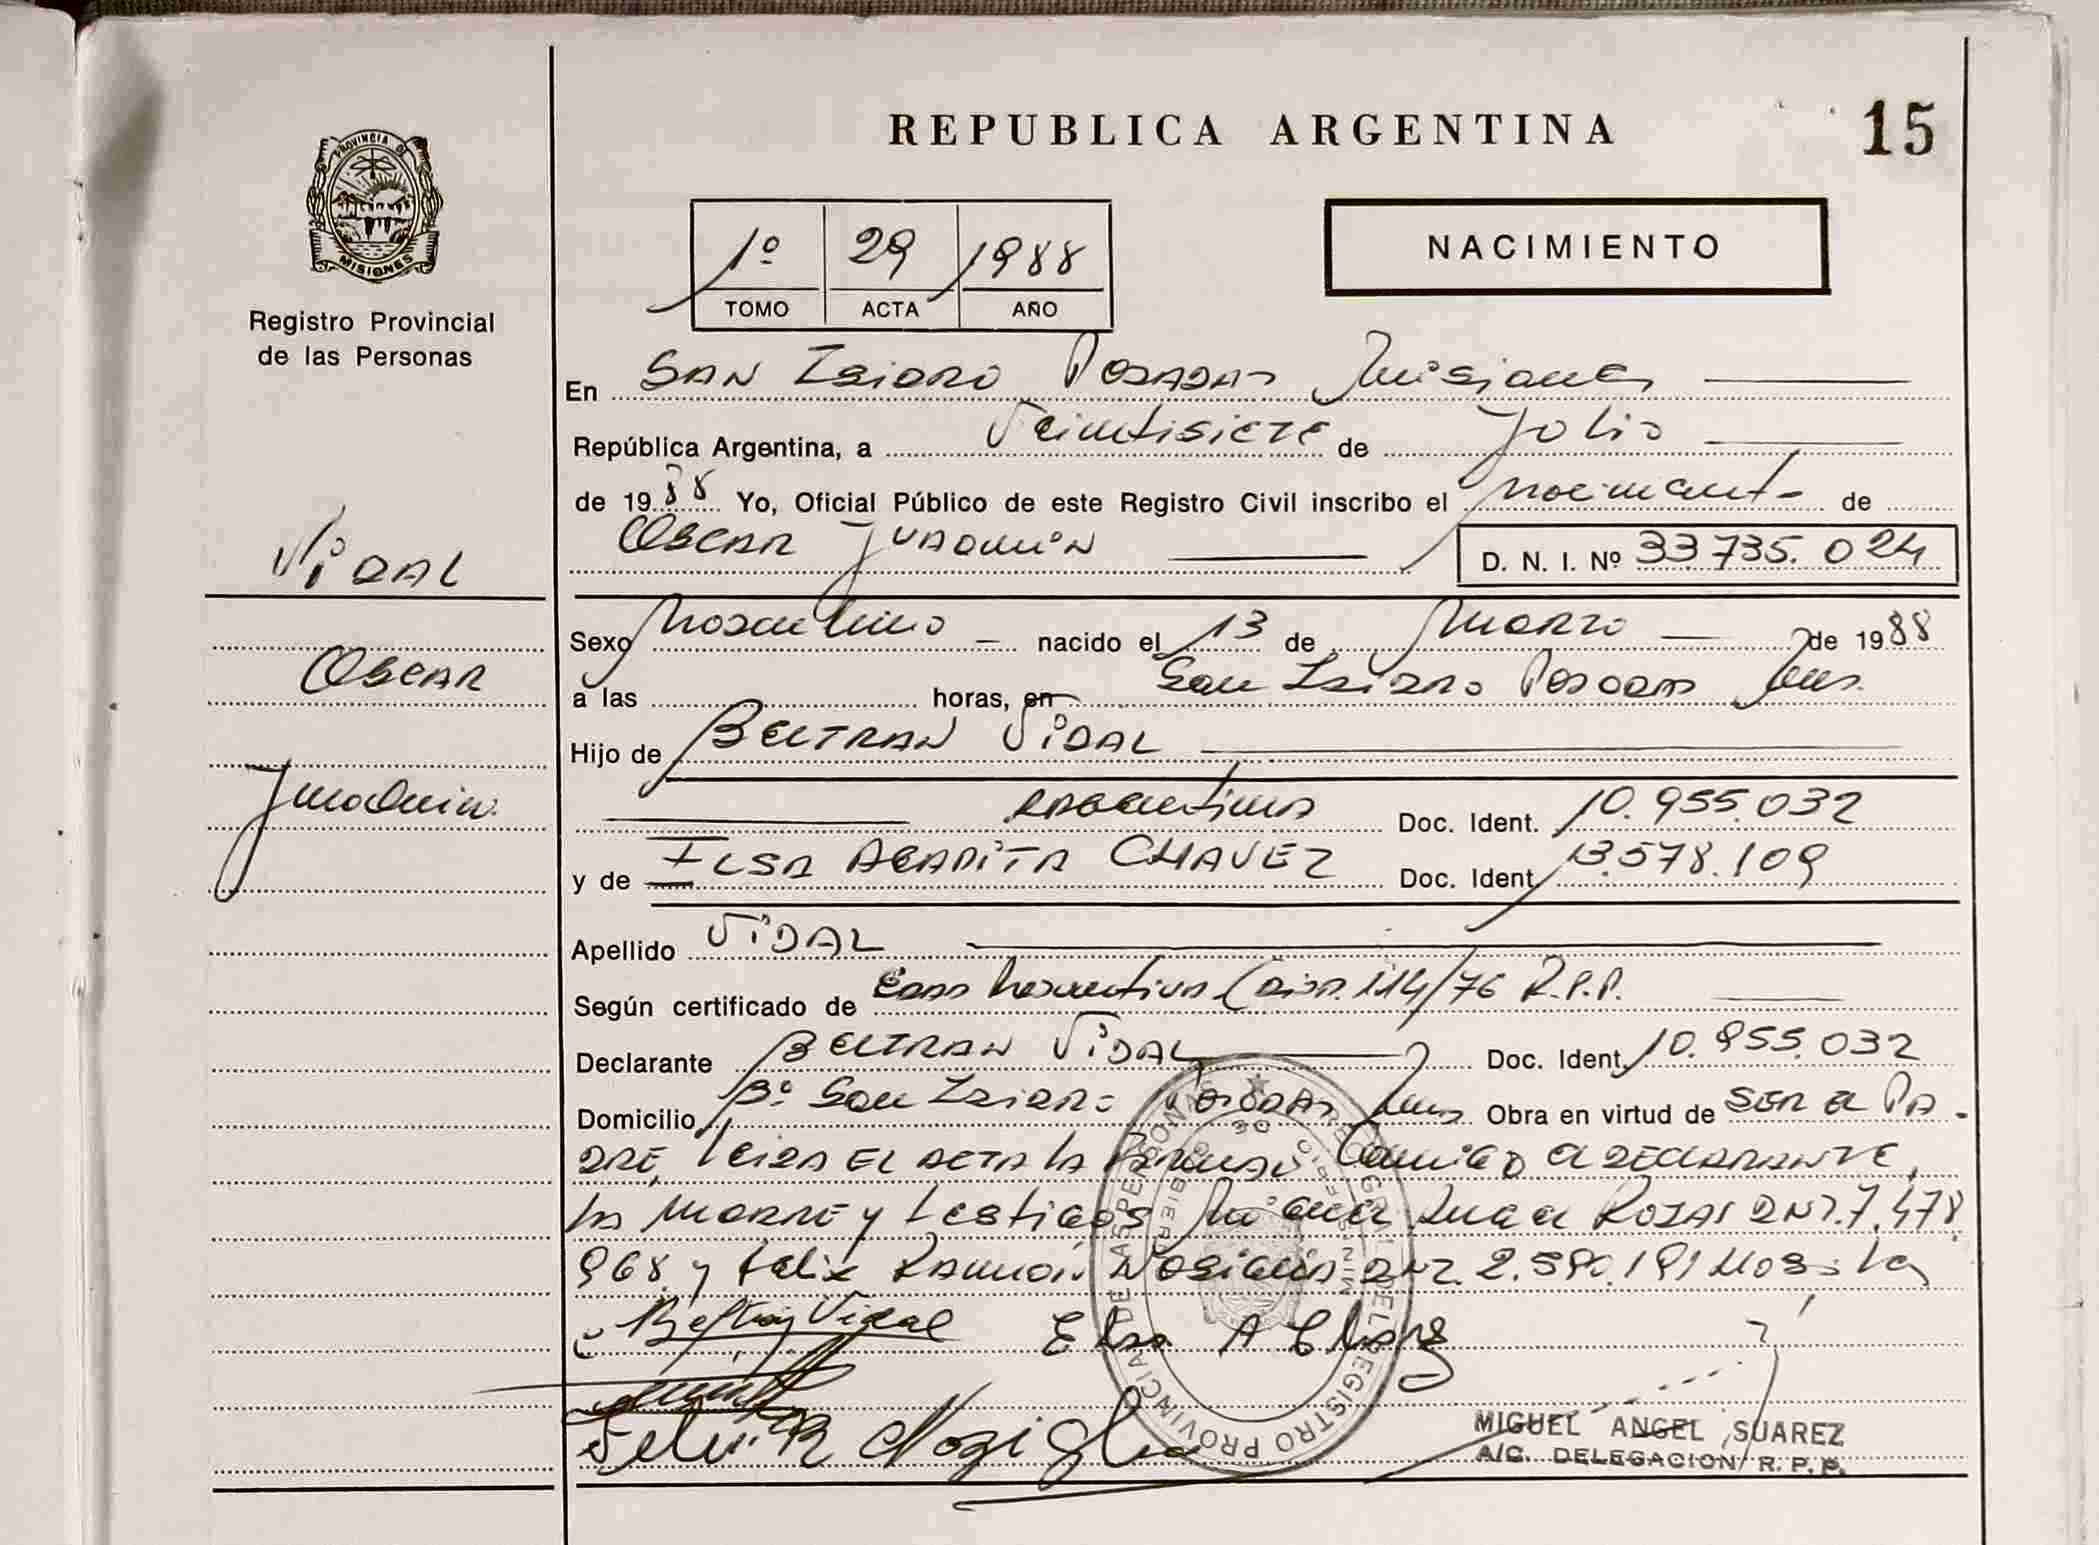 REPUBLICA ARGENTINA
15
PROVINCIA DE
MISIONES
Registro Provincial
de las Personas
1º 29 1988
TOMO ACTA AÑO
NACIMIENTO
En San Isidro Posadas Misiones
República Argentina, a Veintisiete de Julio
de 1988 Yo, Oficial Público de este Registro Civil inscribo el nacimiento de
Oscar Juaquin D. N. I. Nº 33.735.024
Vidal
Oscar
Juaquin
Sexo Masculino nacido el 13 de Marzo de 1988
a las horas, en San Isidro Posadas Mnes.
Hijo de Beltran Vidal
Argentinos Doc. Ident. 10.955.032
y de Ilsa Chavez Doc. Ident. 13.578.109
Apellido Vidal
Según certificado de 114/76 R.P.P.
Declarante Beltran Vidal Doc. Ident. 10.955.032
Domicilio Bº San Isidro Posadas Mnes Obra en virtud de ser el Pa-
dre, leida el acta la firman conmigo el declarante,
la madre y testigos Rojas DNI. 7.478
968 y Felix Ramón DNI. 2.
Beltran Vidal Elsa A Chavez
Noziglia
REGISTRO PROVINCIAL DE LAS PERSONAS
MIGUEL ANGEL SUAREZ
A/C. DELEGACION R. P. P.